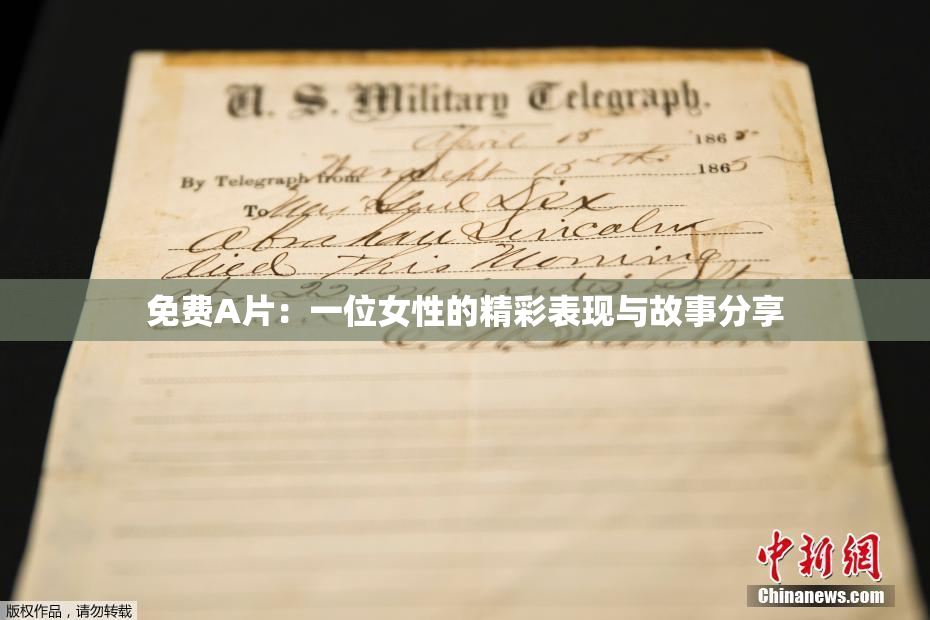 U. S. Military Telegraph.
April 15 1865
By Telegraph from War Dept 15th 1865
To Maj Genl Dix
Abraham Lincoln
died This Morning
at 22 minutes after
免费A片：一位女性的精彩表现与故事分享
E. M. Stanton
中新網
Chinanews.com
版权作品，请勿转载